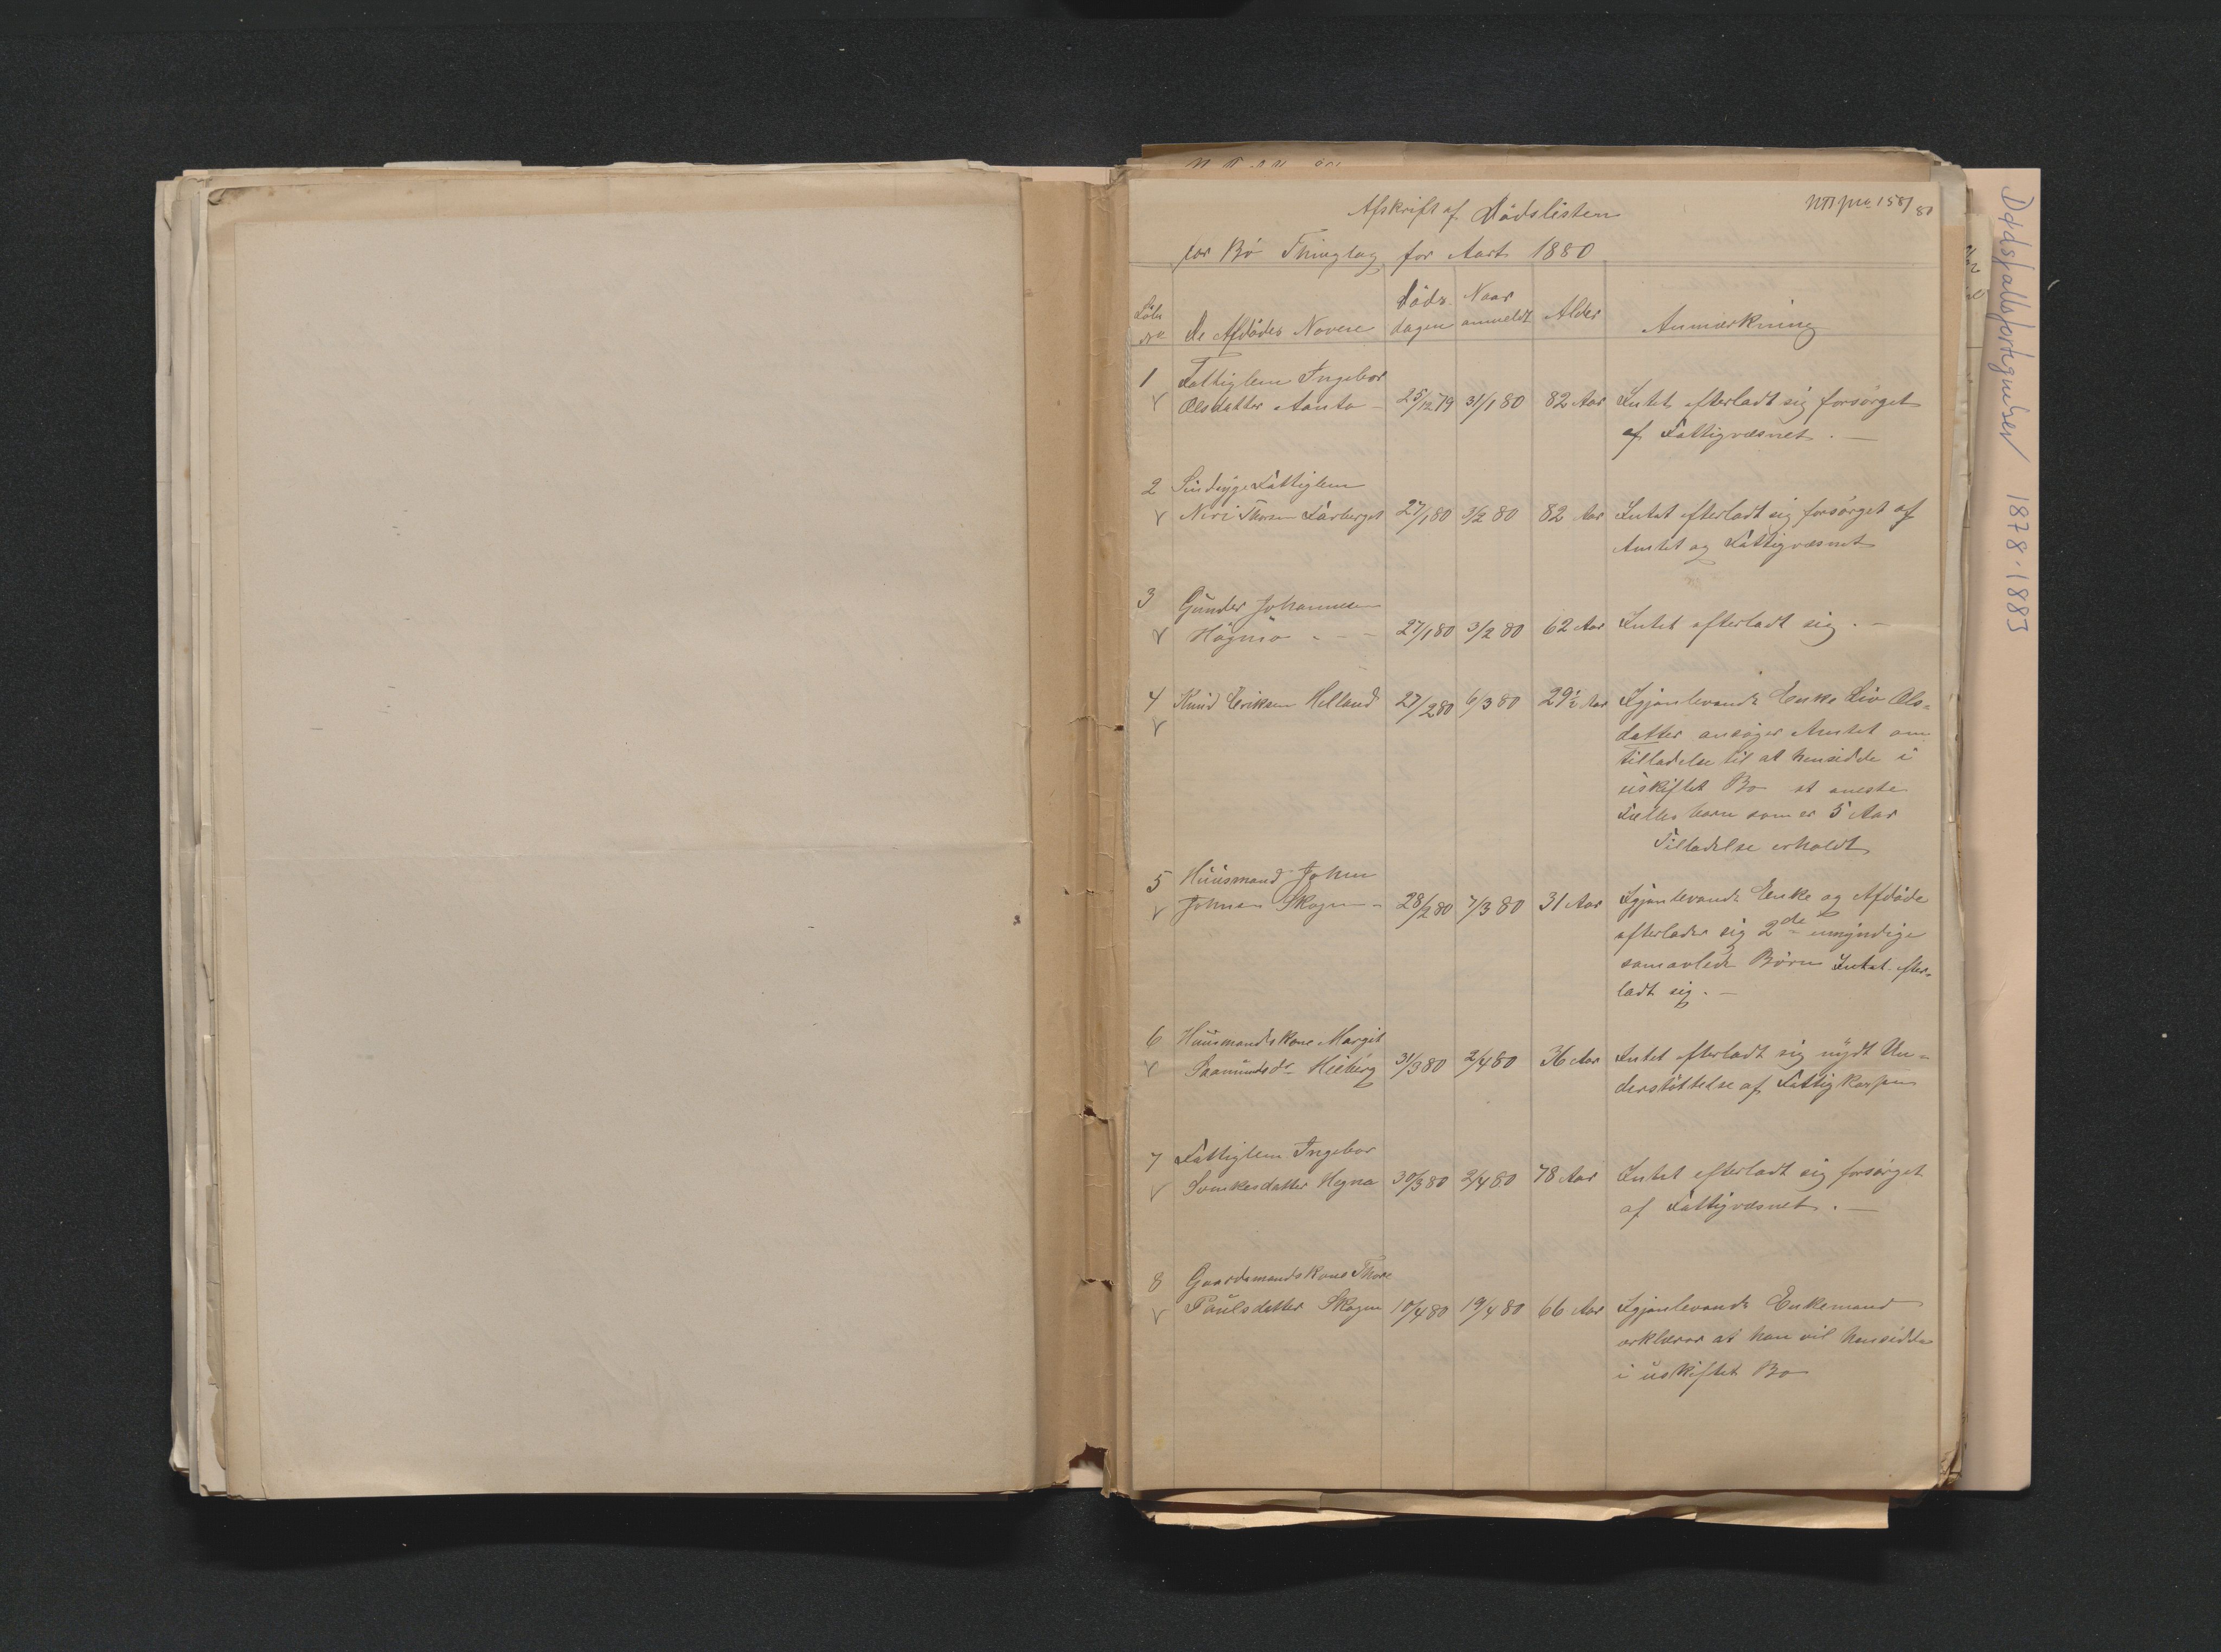 Afskrift af Dödslisten
for Bö Thinglag for Aart 1880
Löbe No
De Afdödes Navne
Döds dagen
Naar anmeldt
Alder
Anmærkning
1 Fattiglem Ingebor
Olsdatter Aanta - 25/12 79 31/1 80 82 Aar Intet efterladt sig forsörget
af Fattigvæsnet. —
2 Sindsyge Fattiglem
Neri Thorsen 27/1 80 3/2 80 82 Aar Intet efterladt sig forsörget af
Amtet og Fattigvæsnet
3 Gunder Johannesen
27/1 80 3/2 80 62 Aar Intet efterladt sig. —
4 Knud Eriksen Helland 27/2 80 6/3 80 29½ Aar Igjenlevende Enke Liv Ols-
datter ansöger Amtet om
tilladelse til at hensidde i
uskiftet Bo
Fælles barn som er 5 Aar
Tilladelse erholdt
5 Huusmand John
Johnsen Skogen - 28/2 80 7/3 80 31 Aar Igjenlevende Enke og Afdöde
efterlader sig 2de umyndige
samavlede Börn Intet efter-
ladt sig. —
6 Huusmandskone Margit
Saamundsdr 31/3 80 2/4 80 36 Aar Intet efterladt sig nydt Un-
derstöttelse af Fattigkassen
7 Fattiglem Ingebor
Svenkesdatter Hegna 30/3 80 2/4 80 78 Aar Intet efterladt sig forsörget
af Fattigvæsnet. —
8 Gaardmandskone Thore
Paulsdatter Skogen 10/4 80 19/4 80 66 Aar Igjenlevende Enkemand
erklærer at han vil hensidde
i uskiftet Bo
Dødsfallsfortegnelser 1878-1883